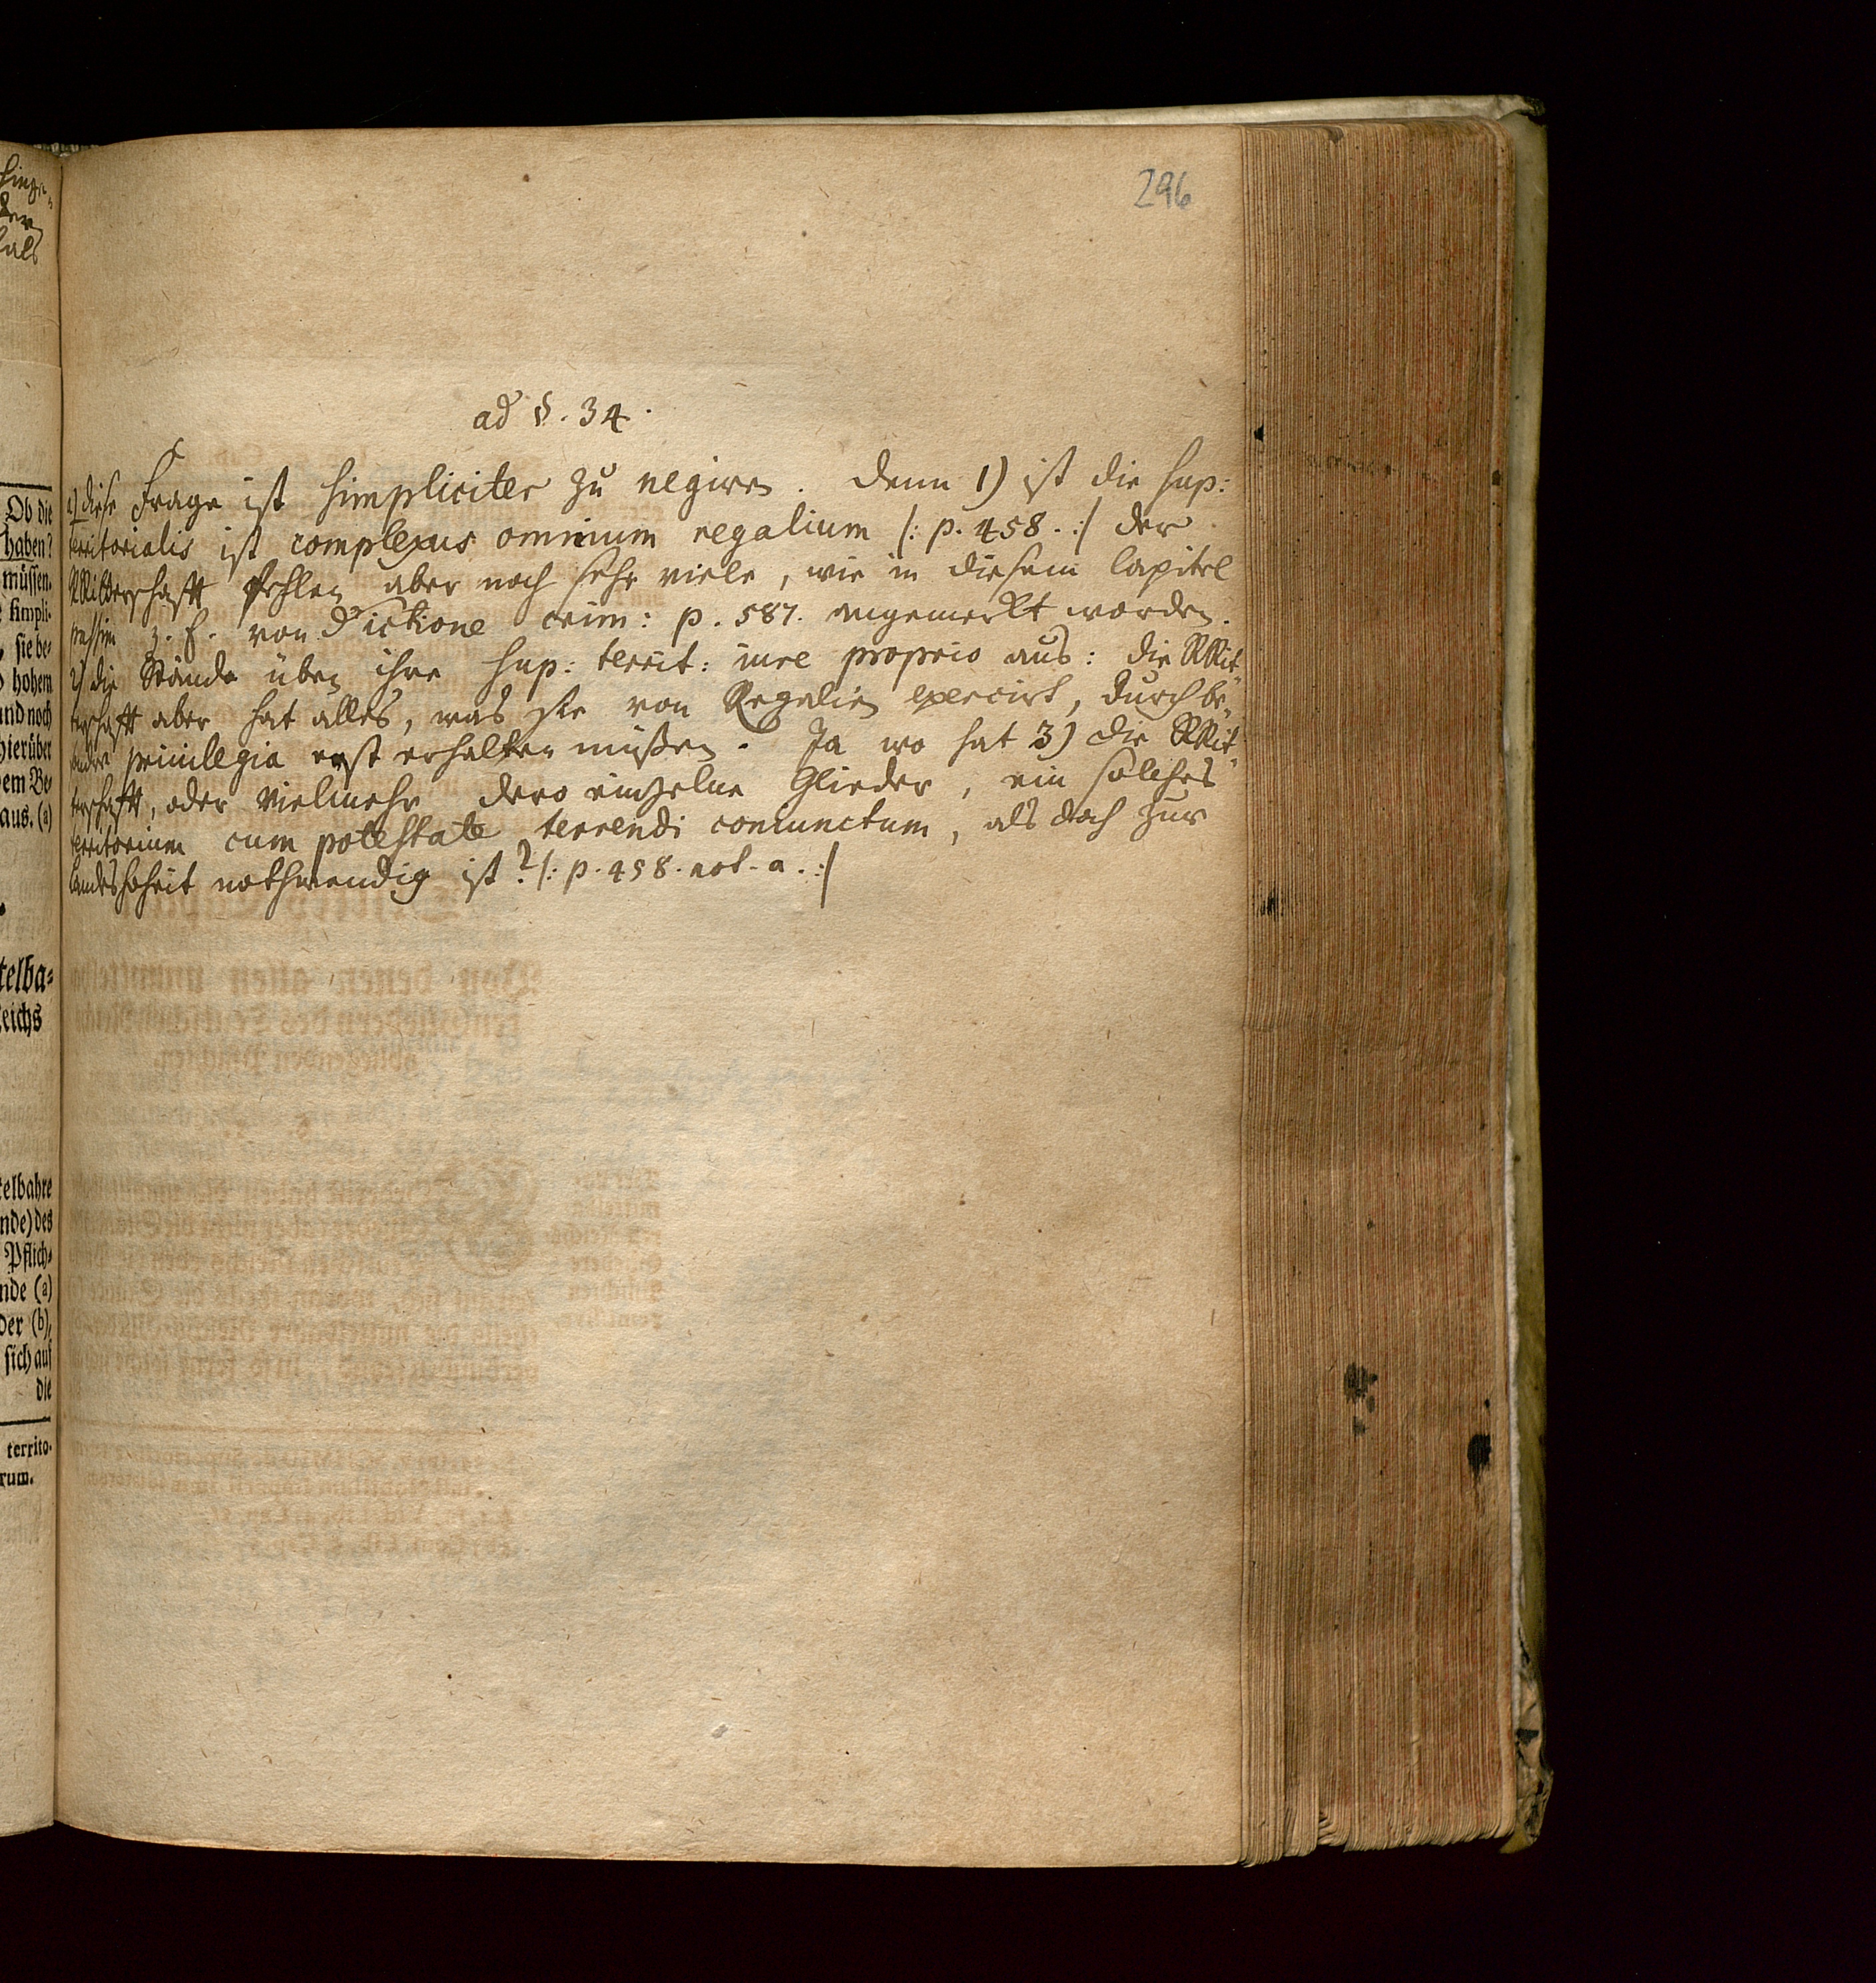 296
ad §. 34.
1) diese Frage ist simpliciter zu negiren. denn 1) ist die sup:
territorialis ist complexus omnium regalium /: p. 458. :/ der
RRitterschafft fehlen aber noch sehr viele, wie in diesem Capitel
passim z. E. von Jurisdictione crim: p. 587. angemerkt worden.
2) die Stände üben ihre sup: territ: iure proprio aus: die RRit„
terschafft aber hat alles, was sie von Regalien exercirt, durch be„
sondre privilegia erst erhalten müßen. Ja wo hat 3) die RRit„
terschafft, oder vielmehr dero einzelne Glieder, ein solches
territorium cum potestate terrendi coniunctum, als doch zur
Landeshoheit nothwendig ist? /: p. 458. not. a. :/
Ob die
haben?
müssen.
simpli-
sie be-
hohem
und noch
hierüber
dem Be-
aus. (a)
telba-
eichs
telbahre
nde) des
Pflich-
nde (a)
der (b),
sich auf
die
territo-
rum.